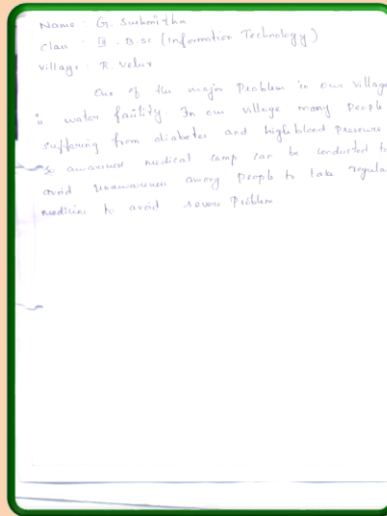 Name : G. Sushmitha
Class : III - B.Sc (Information Technology)
Village : R. Velur
One of the major problem in our village
is water facility In our village many people
suffering from diabetes and high blood pressure
so awareness medical camp can be conducted to
avoid unawareness among people to take regular
medicine to avoid severe problem